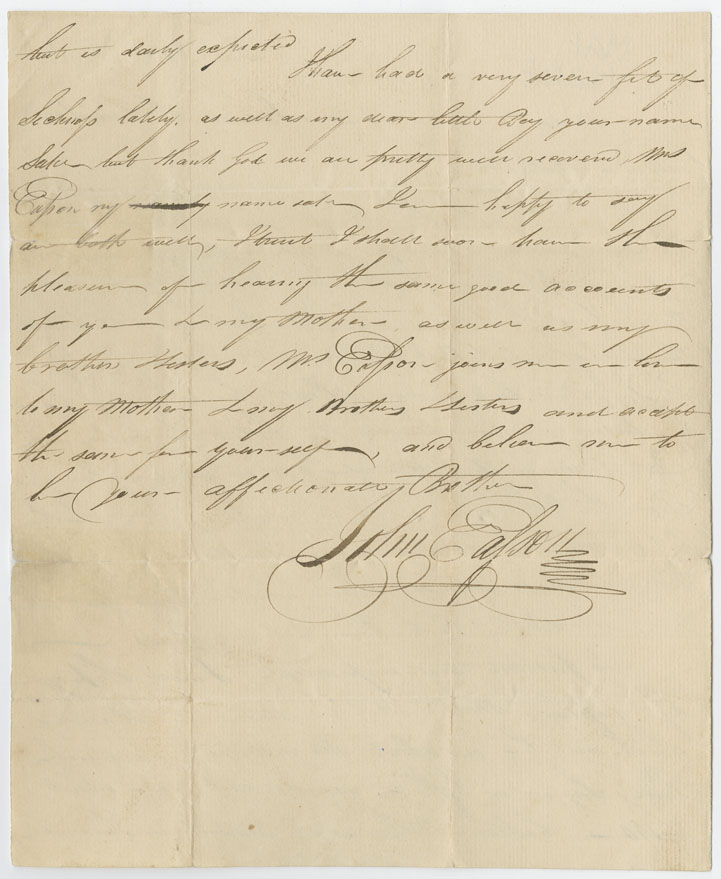 but is daily expected
I have had a very severe fit of
Sickness lately. as well as my dear little Boy your name
Sake but thank God we are pretty well recovered Mrs
Eason my name sake I am happy to say
are both well, I trust I shall soon have the
pleasure of hearing the same good accounts
of you & my Mother, as well as my
brothers & sisters, Mrs Eason joins me in love
to my Mother & my Brothers & sisters and accept
the same for your-self, and believe me to
be your affectionate Brother
John Eason